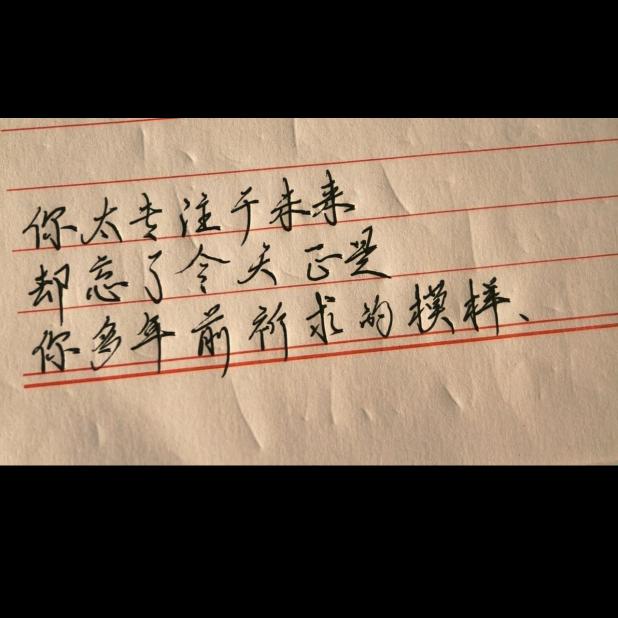 你太专注于未来
却忘了今天正是
你多年前祈求的模样、